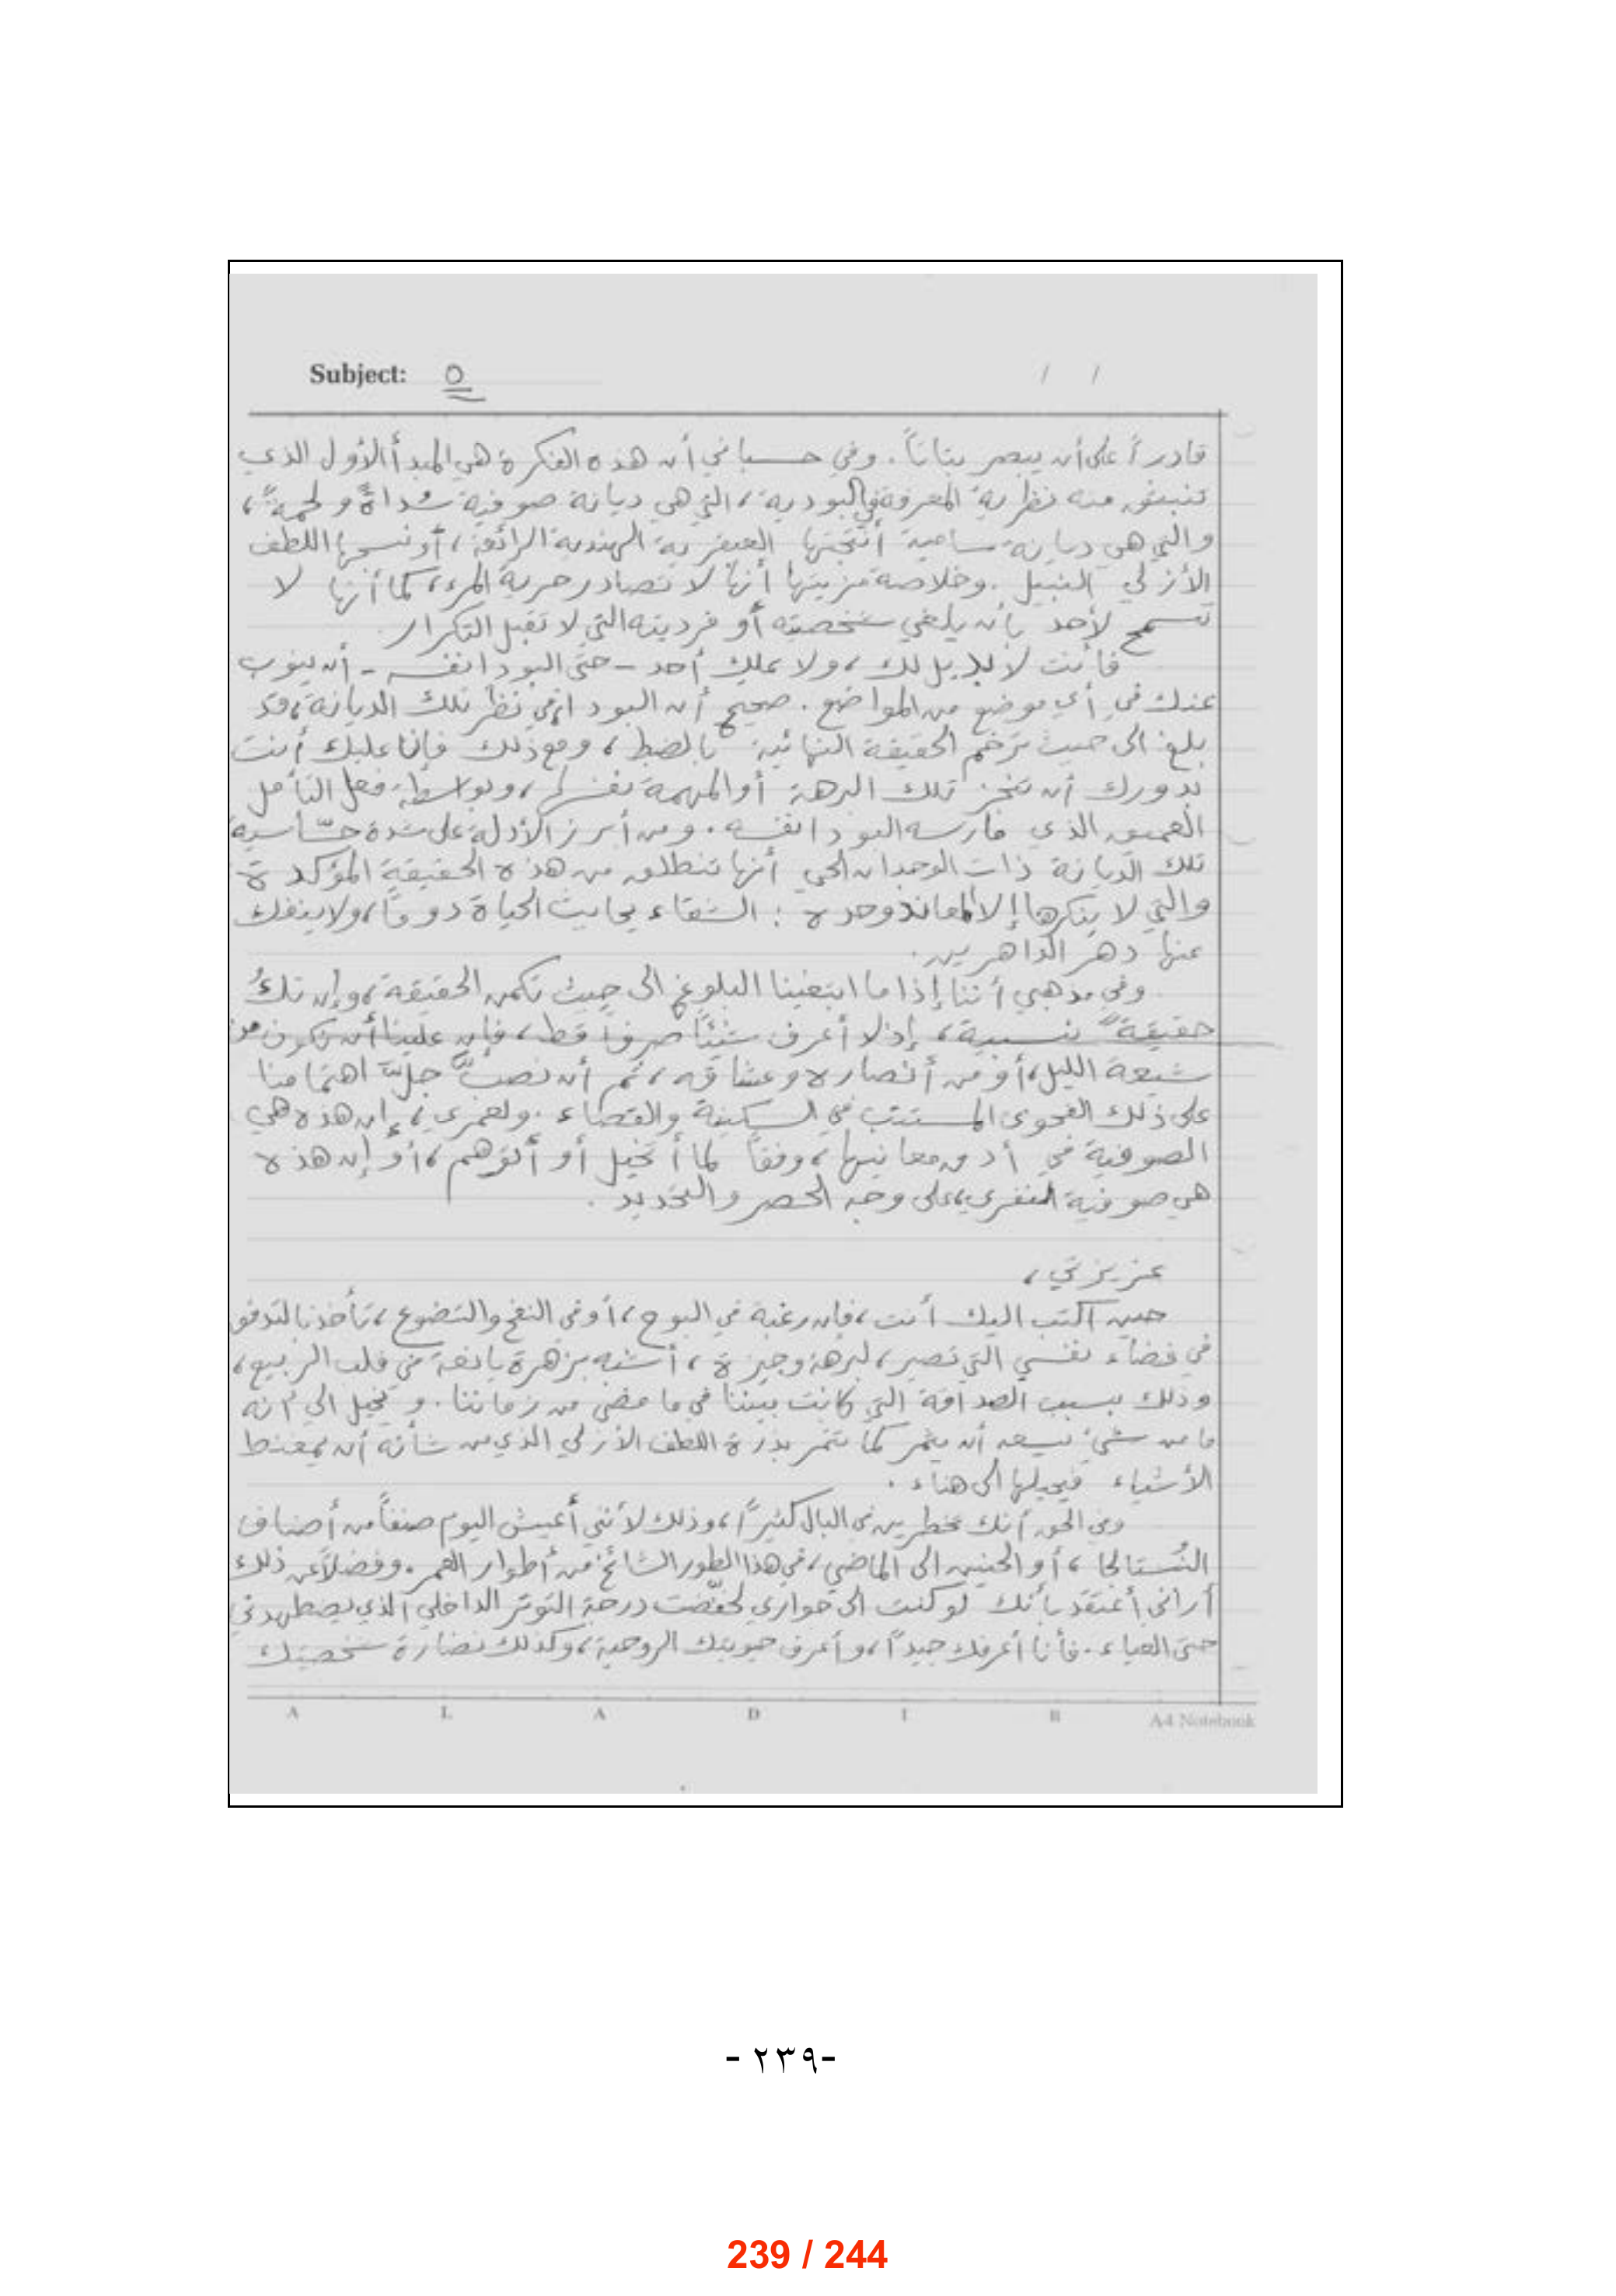 Subject: ٥ / /
قادراً على أن يبصر بتاتاً. وفي حسباني أن هذه الفكرة هي المبدأ الأول الذي
تنبثق منه نظرية المعرفة في البوذية، التي هي ديانة صوفية سُداةً ولحمةً،
والتي هي ديانة سامية أنتجتها العبقرية الهندية الرائعة، أو نسجها اللطف
الأزلي النبيل. وخلاصة مزيتها أنها لا تصادر حرية المرء، كما أنها لا
تسمح لأحد بأن يلغي شخصيته أو فرديته التي لا تقبل التكرار.
فأنت لا بديل لك، ولا يملك أحد - حتى البوذا نفسه - أن ينوب
عنك في أي موضع من المواضع. صحيح أن البوذا، في نظر تلك الديانة، قد
بلغ الى حيث ترخم الحقيقة النهائية بالضبط، ومع ذلك فإن عليك أنت
بدورك أن تنجز تلك البرهة أو المهمة نفسها، وبواسطة فعل التأمل
العميق الذي مارسه البوذا نفسه. ومن أبرز الأدلة على شدة حسّاسية
تلك الديانة ذات الوجدان الحي أنها تنطلق من هذه الحقيقة المؤكدة
والتي لا ينكرها إلا المعاند وحده: الشقاء يحايث الحياة دوماً، ولا ينفك
عنها دهر الداهرين.
وفي مذهبي أننا إذا ما ابتغينا البلوغ الى حيث تكمن الحقيقة، وإن تكُ
حقيقةً نسبية، إذ لا أعرف شيئاً صرفاً قط، فإن علينا أن نكون من
شيعة الليل، أو من أنصاره وعشاقه، ثم أن نصبَّ جلَّ اهتمامنا
على ذلك الفحوى المستتب في السكينة والفضاء. ولعمري، إن هذه هي
الصوفية في أدق معانيها، وفقاً لما أتخيل أو أتوهم، أو إن هذه
هي صوفية النفري، على وجه الحصر والتحديد.
عزيزتي،
حين أكتب اليك أنت، فإن رغبة في البوح، أو في النفح والتضوع، تأخذ بالتدفق
في فضاء نفسي التي تصير، لبرهة وجيزة، أشبه بزهرة يانعة في قلب الربيع،
وذلك بسبب الصداقة التي كانت بيننا في ما مضى من زماننا. ويخيل الي أنه
ما من شيء يسعه أن يثمر كما تثمر بذرة اللطف الأزلي الذي من شأنه أن يمغنط
الأشياء فيحيلها الى هناء.
وفي الحق أنك تخطرين في البال كثيراً، وذلك لأنني أعيش اليوم صنفاً من أصناف
النُستالجا، أو الحنين الى الماضي، في هذا الطور الشائخ من أطوار العمر. وفضلاً عن ذلك
أراني أعتقد بأنك لو كنت الى جواري لخفّضت درجة التوتر الداخلي الذي يضطهدني
حتى العياء. فأنا أعرفك جيداً، وأعرف حيويتك الروحية، وكذلك نضارة شخصيتك
A L A D I B A4 Notebook
- ٢٣٩-
239 / 244